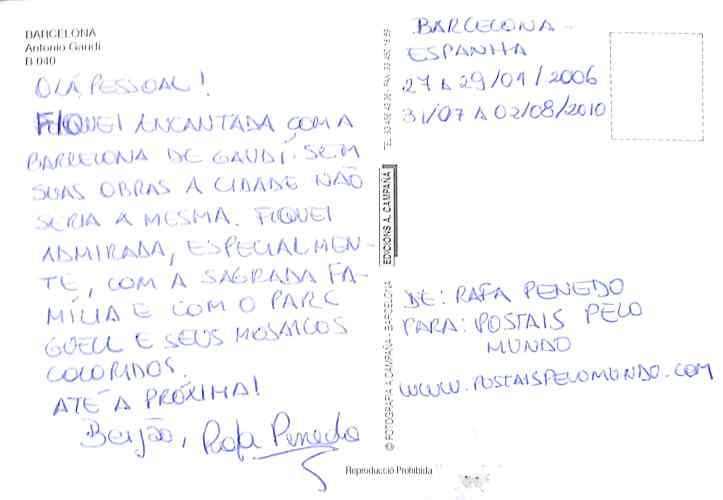 BARCELONA
Antonio Gaudí
B 040
OLÁ, PESSOAL!
FIQUEI ENCANTADA COM A
BARCELONA DE GAUDÍ. SEM
SUAS OBRAS A CIDADE NÃO
SERIA A MESMA. FIQUEI
ADMIRADA, ESPECIALMEN-
TE, COM A SAGRADA FA-
MÍLIA E COM O PARC
GÜELL E SEUS MOSAICOS
COLORIDOS.
ATÉ A PRÓXIMA!
Beijão, Rafa Penedo
© FOTOGRAFIA A. CAMPAÑA - BARCELONA
EDICIONS A. CAMPAÑA
Reproducció Prohibida
BARCELONA -
ESPANHA
27 A 29/01/2006
31/07 A 02/08/2010
DE: RAFA PENEDO
PARA: POSTAIS PELO
MUNDO
WWW.POSTAISPELOMUNDO.COM